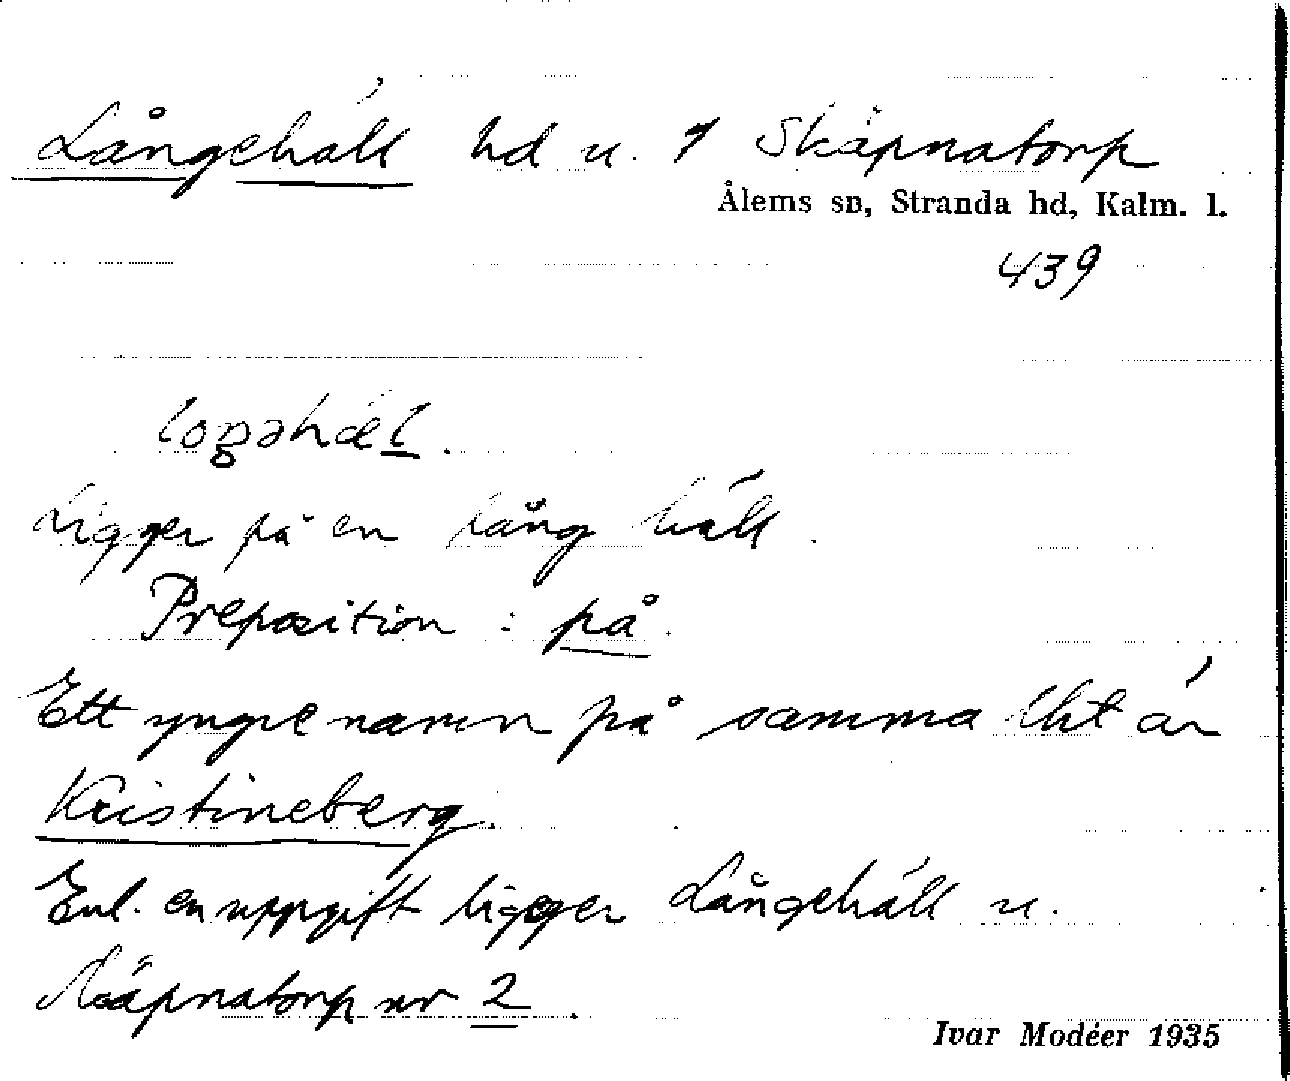 Långehäll hd u. 1 Skäpnatorp
Ålems sn, Stranda hd, Kalm. l.
439
Ligger på en lång häll.
Preposition: på.
Ett yngre namn på samma lht är
Kristineberg.
Enl. en uppgift ligger Långehäll u.
Skäpnatorp nr 2.
Ivar Modéer 1935